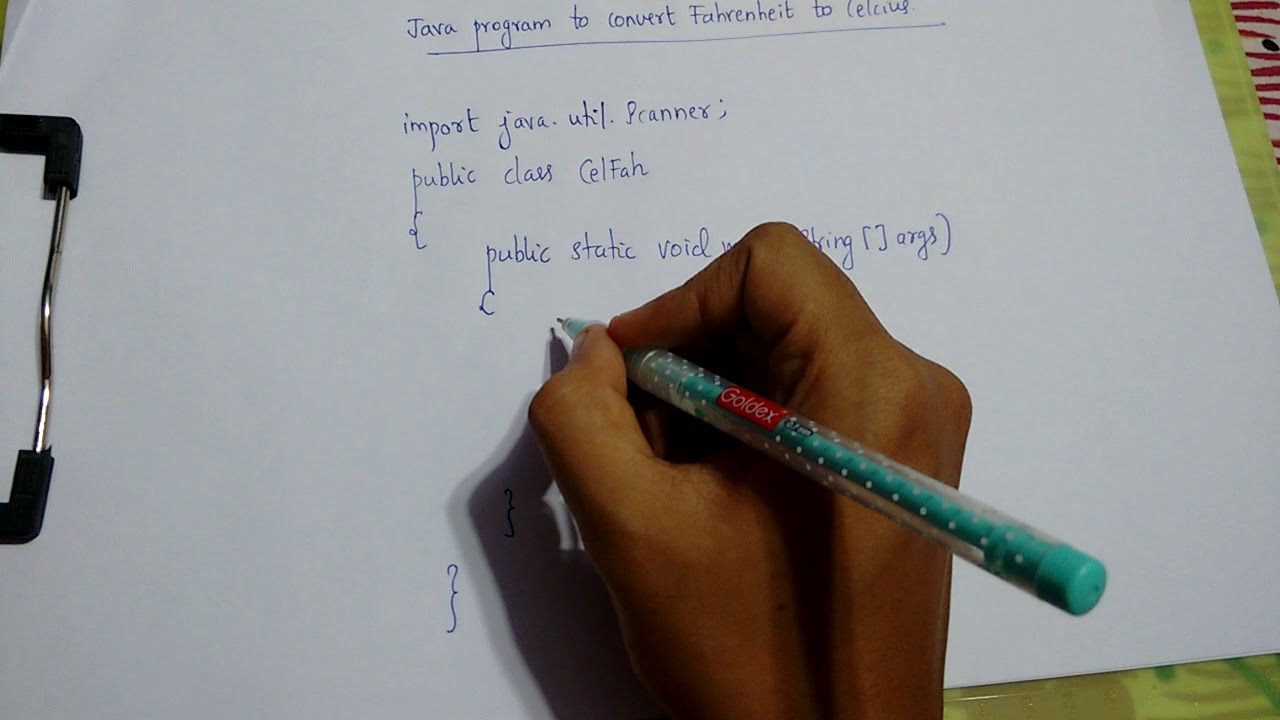 Java program to convert Fahrenheit to Celcius.
import java.util.Scanner;
public class CelFah
{
public static void String [] args)
{
}
}
Goldex